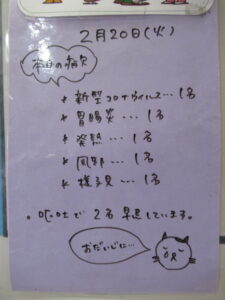 2月20日(火)
本日の病欠
* 新型コロナウイルス… 1名
* 胃腸炎… 1名
* 発熱… 1名
* 風邪… 1名
* 様子見… 1名
・嘔吐で 2名 早退しています。
おだいじに…